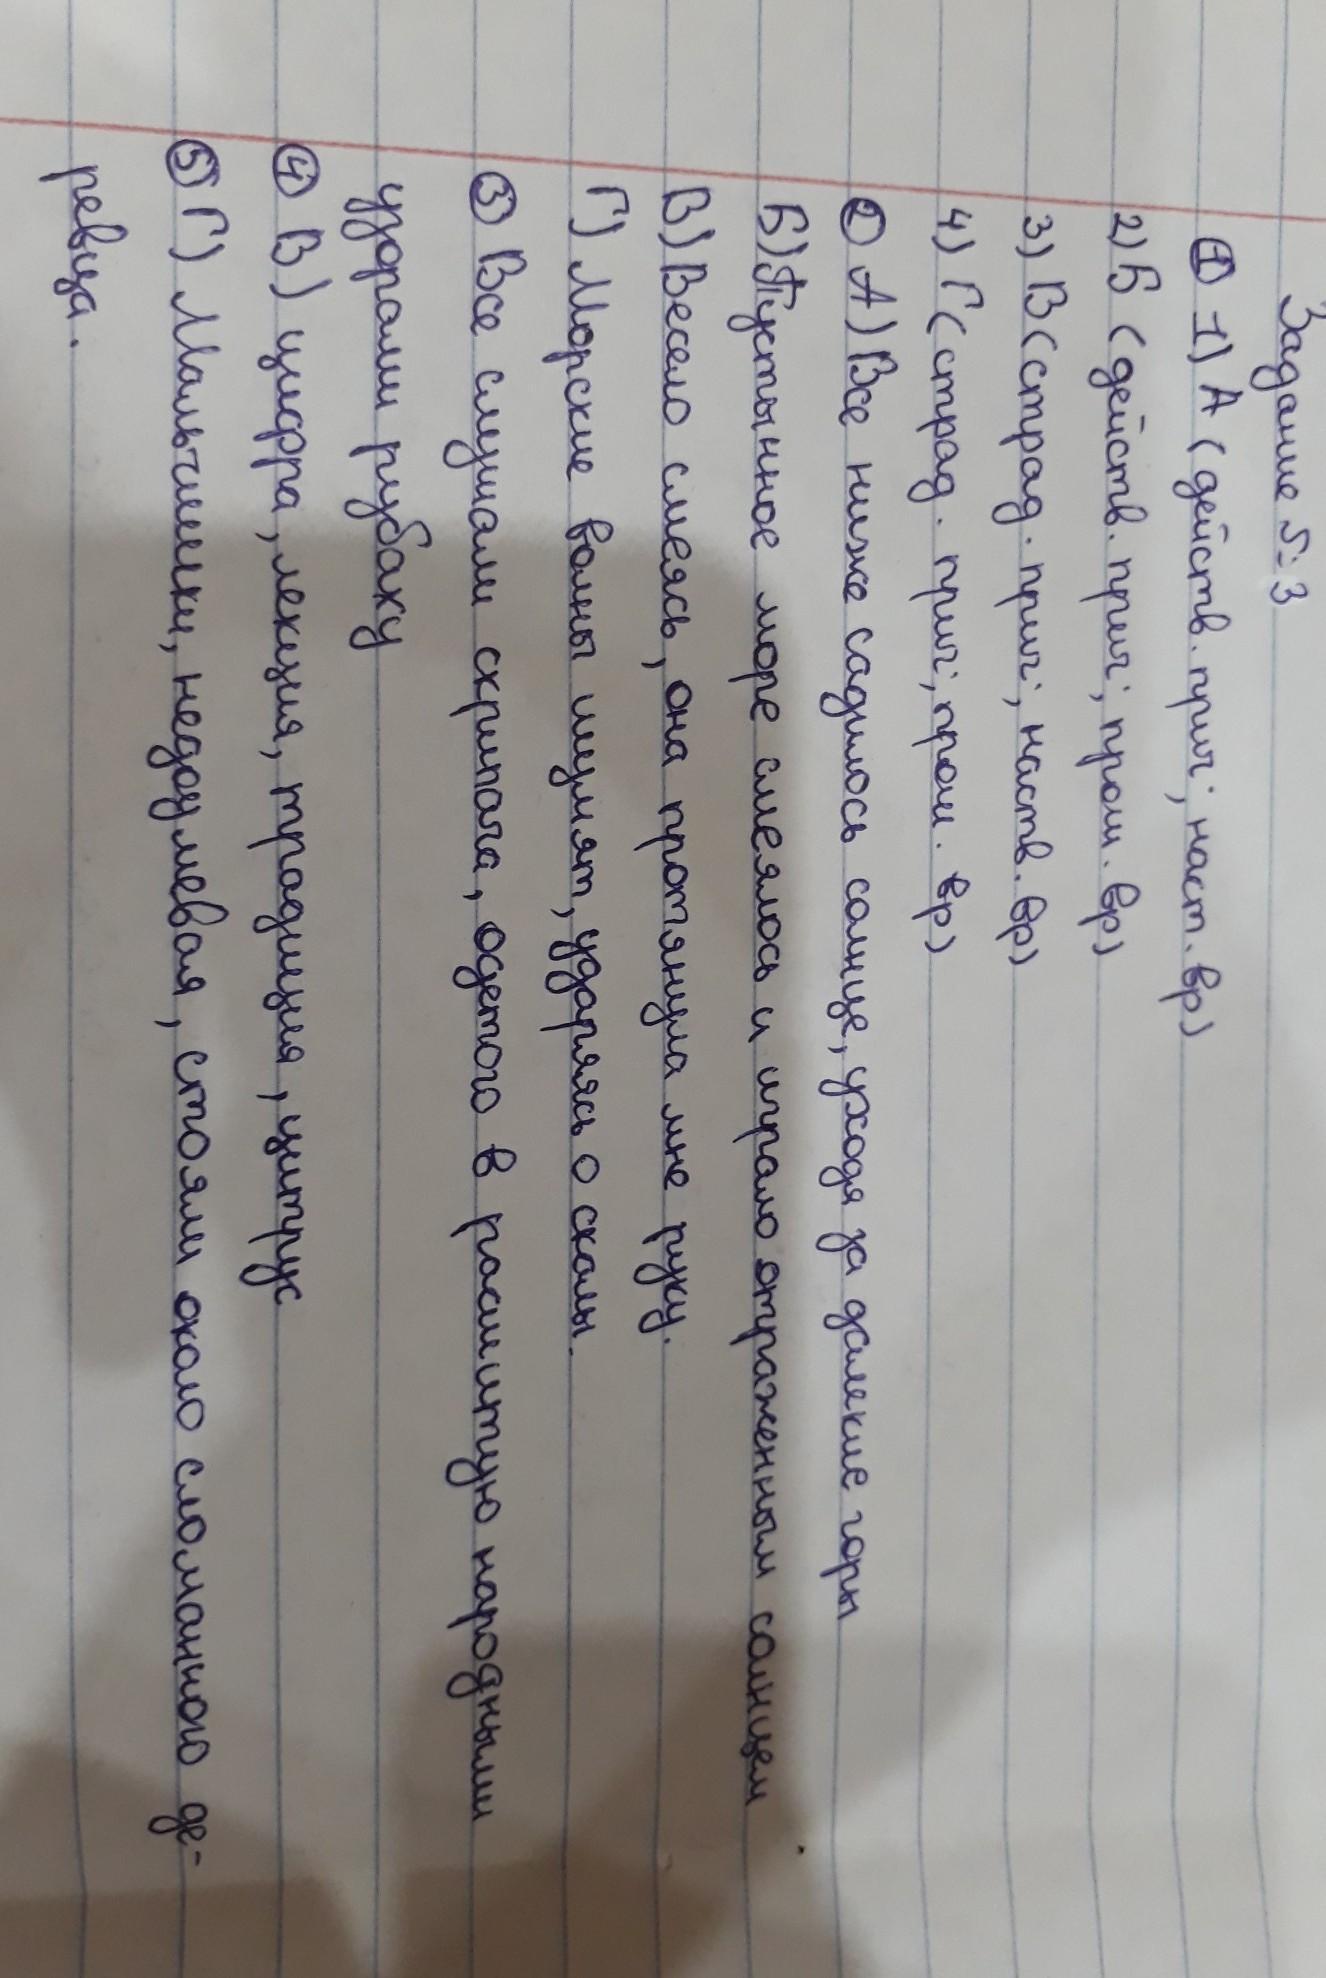 Задание № 3
① 1) А (действ. прич., наст. вр)
2) Б (действ. прич., прош. вр)
3) В (страд. прич., наств. вр)
4) Г (страд. прич., прош. вр)
② А) Все ниже садилось солнце, уходя за далекие горы
Б) Пустынное море смеялось и играло отраженным солнцем
В) Весело смеясь, она протянула мне руку.
Г) Морские волны шумят, ударяясь о скалы.
③ Все слушали скрипача, одетого в расшитую народными
узорами рубаху
④ В) цифра, лекция, традиция, цитрус
⑤ Г) Мальчишки, недоумевая, стояли около сломанного де-
ревца.